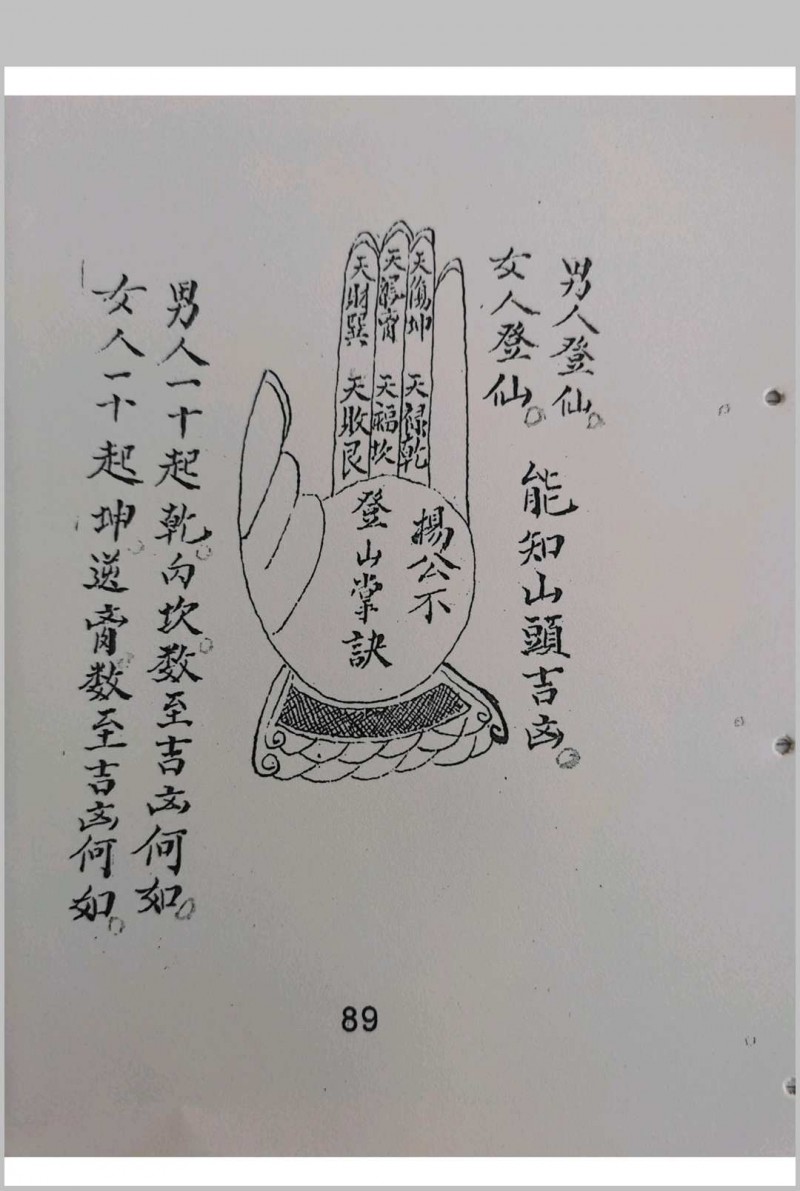 男人登仙。
女人登仙。
能知山頭吉凶。
楊公不
登山掌訣
天傷坤
天祿乾
天
天福坎
天財巽
天敗艮
男人一十起乾。向坎。数至吉凶何如。
女人一十起坤。逆 数至吉凶何如。
89